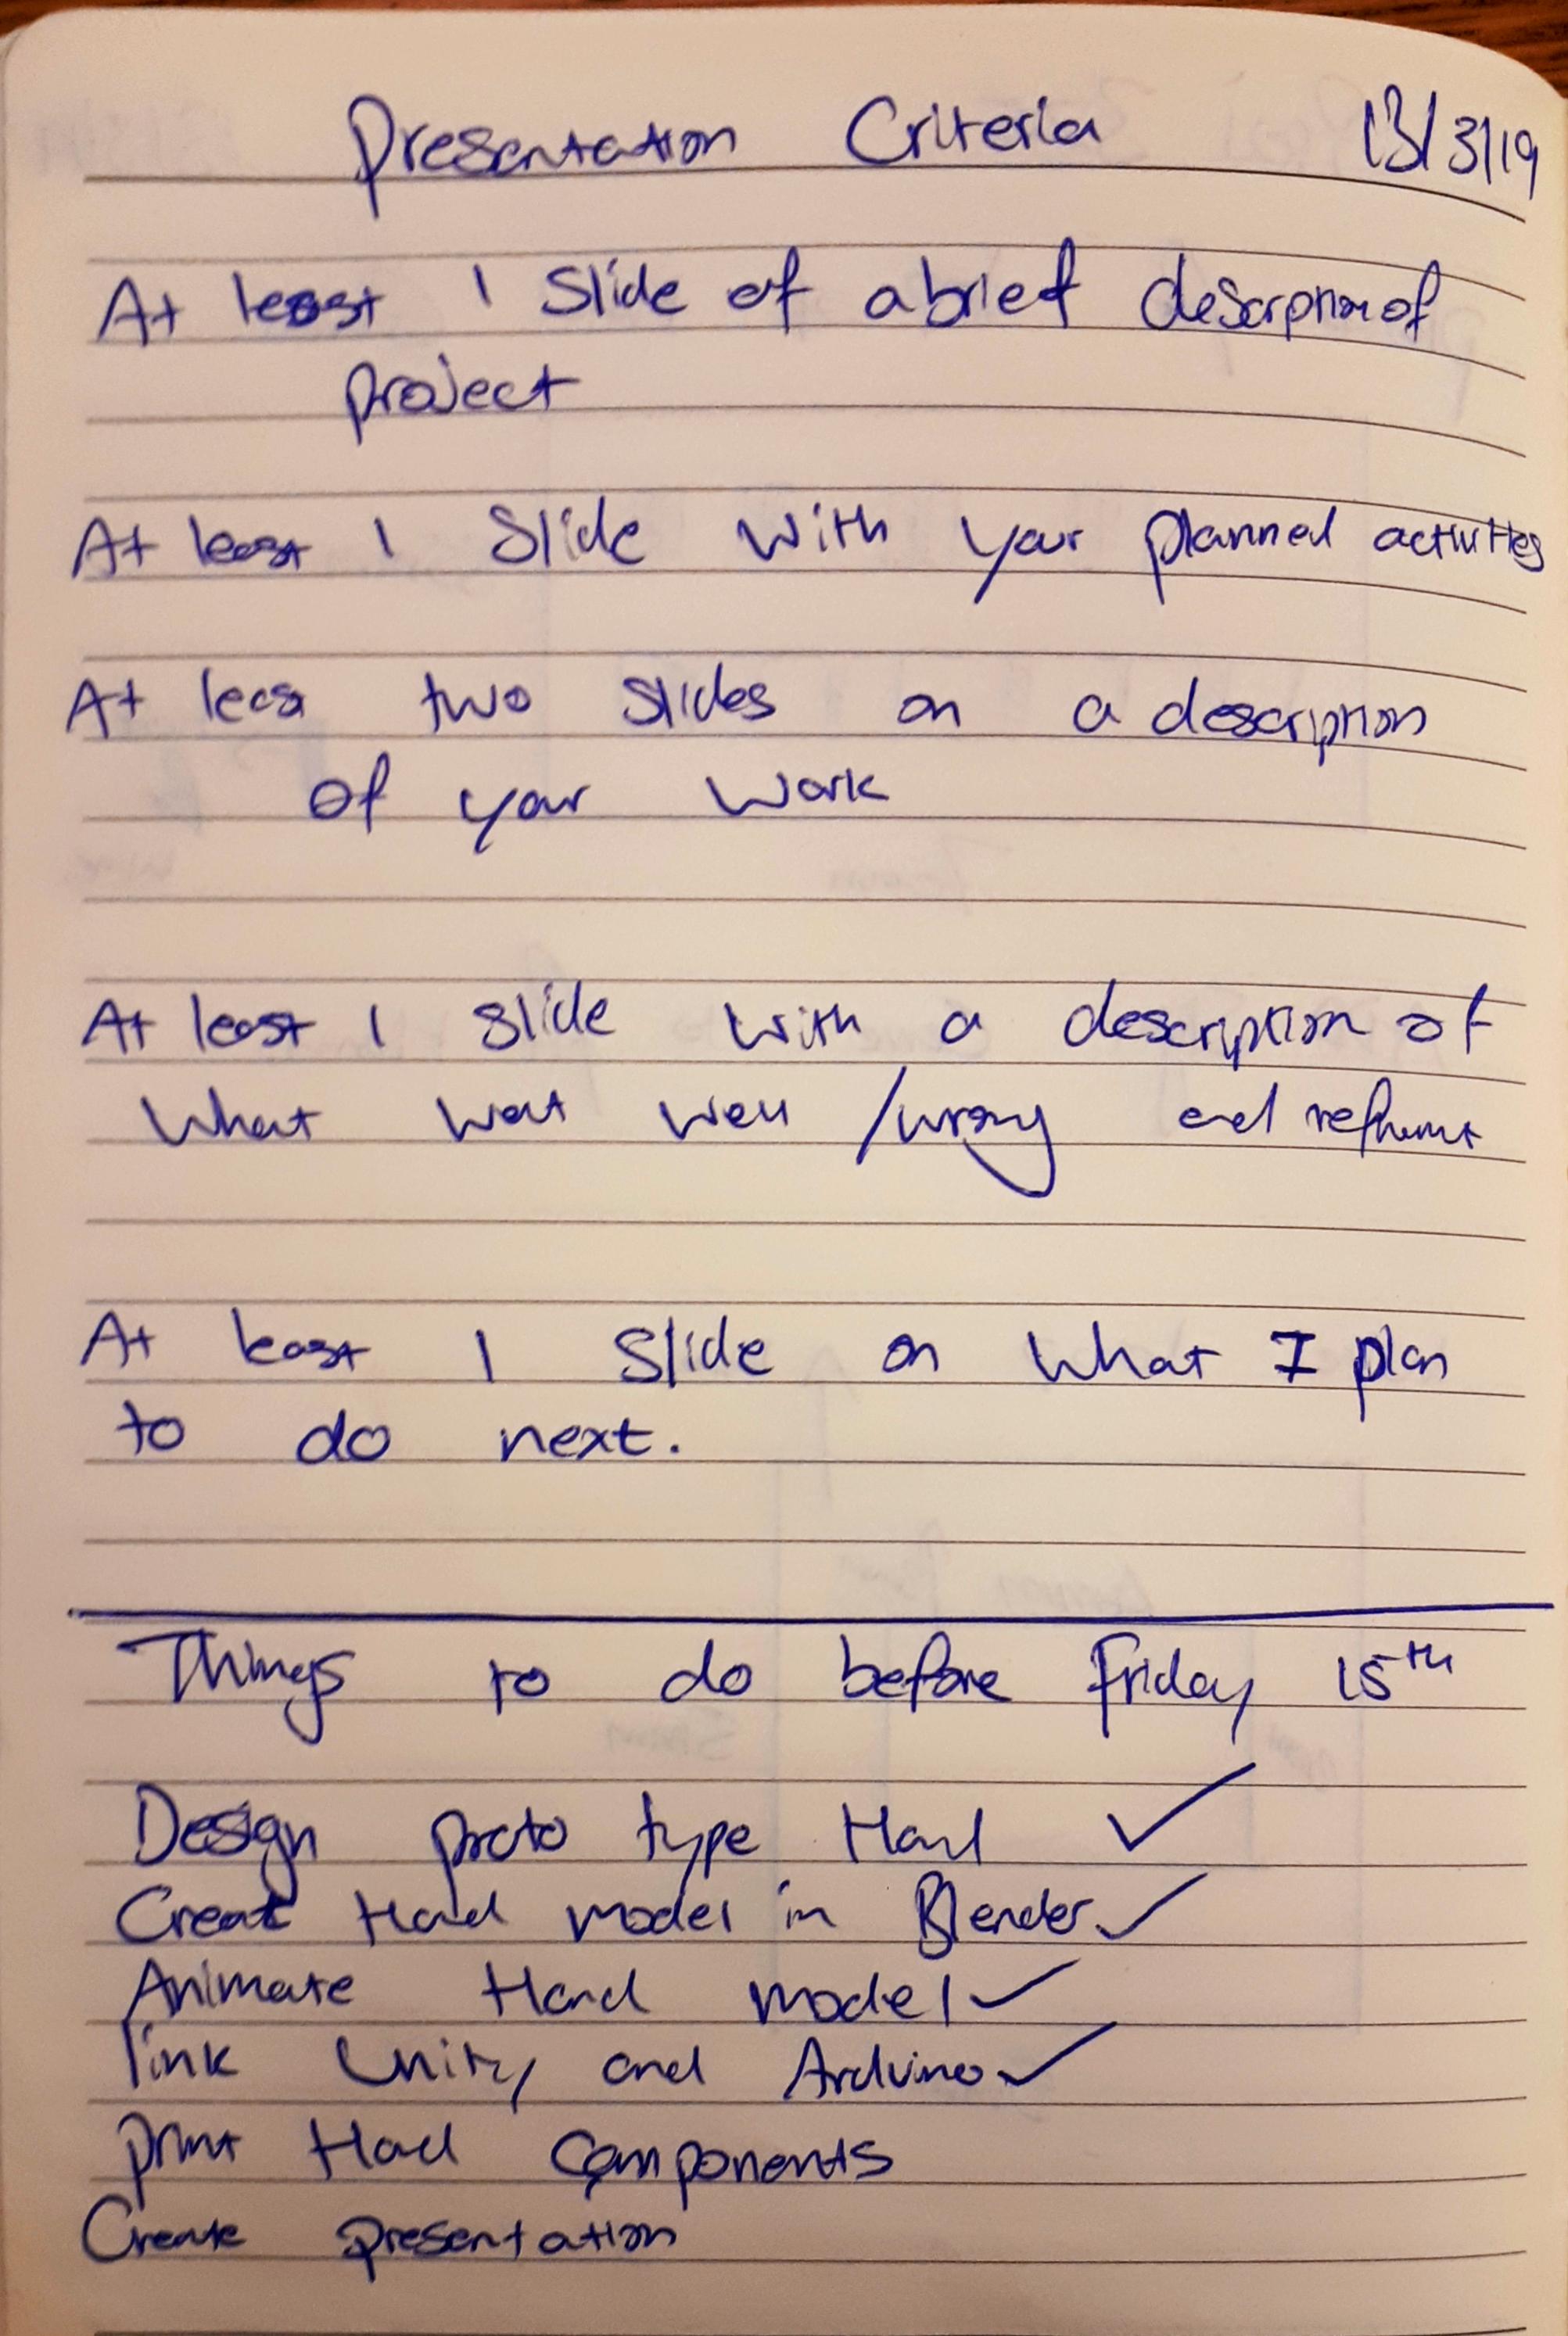 Presentation Criteria 13/3/19
At least 1 Slide of a brief description of
project
At least 1 Slide with your planned activities
At least two slides on a description
of your work
At least 1 slide with a description of
What went well /wrong and
At least 1 Slide on what I plan
to do next.
Things to do before Friday 15th
Design proto type Hand ✓
Create Hand model in Blender ✓
Animate Hand model ✓
link Unity and Arduino ✓
print Hand components
Create presentation